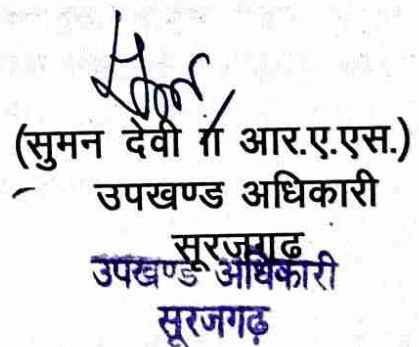 (सुमन देवी आर.ए.एस.)
उपखण्ड अधिकारी
सूरजगढ
उपखण्ड अधिकारी
सूरजगढ़